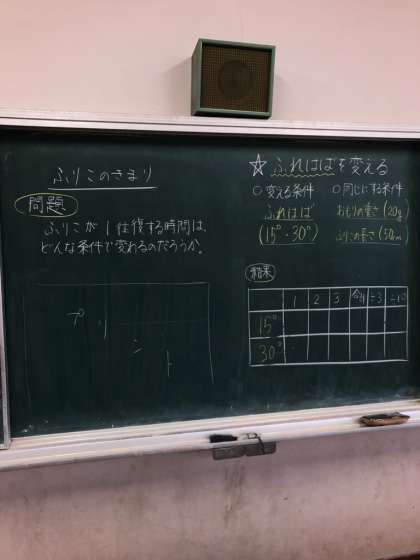 ふりこのきまり
問題
ふりこが1往復する時間は、
どんな条件で変わるのだろうか。
プリント
☆ふれはばを変える
○変える条件 ○同じにする条件
ふれはば おもりの重さ(20g)
(15°・30°) ふりこの長さ(50cm)
結果
1 2 3 合計 ÷3 ÷10
15°
30°